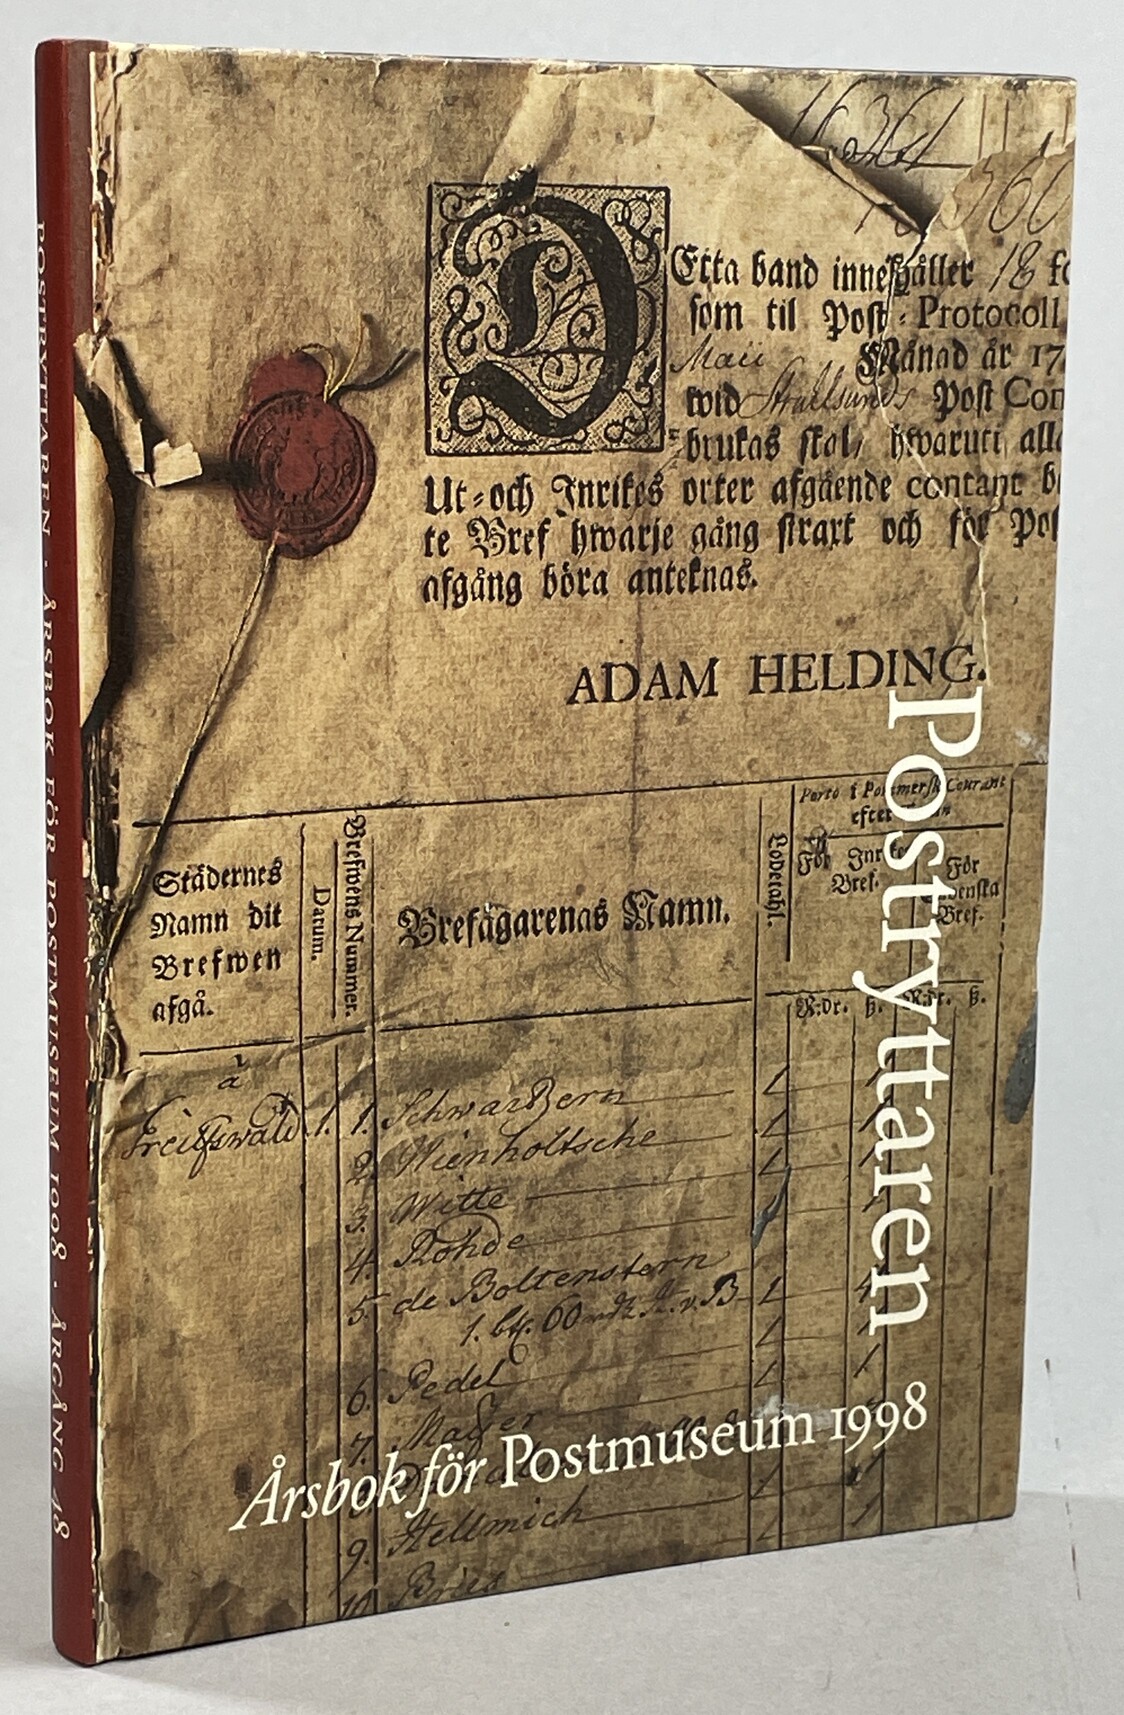 POSTRYTTAREN · ÅRSBOK FÖR POSTMUSEUM 1998 · ÅRGÅNG 48
DEtta band innehåller 18
som til Post-Protocoll
Maii Månad år 17
wid Strallsunds Post
brukas skal, hwaruti
Ut-och Inrikes orter afgående contant
te Bref hwarje gång straxt och för
afgång böra anteknas.
ADAM HELDING.
Städernes
Namn dit
Brefwen
afgå.
Datum.
Brefwens Nummer.
Brefägarenas Namn.
Lodetahl.
Porto i Pommersk Courant
För Inrikes
Bref.
För
Svenska
Bref.
R:dr. ß. R:dr. ß.
à
Greifswald 1. 1. Schwarzern
2. Wienholtsche
3. Witte
4. Rohde
5. de Boltenstern
6. Pedel
7.
9. Hellmich
10.
Postryttaren
Årsbok för Postmuseum 1998